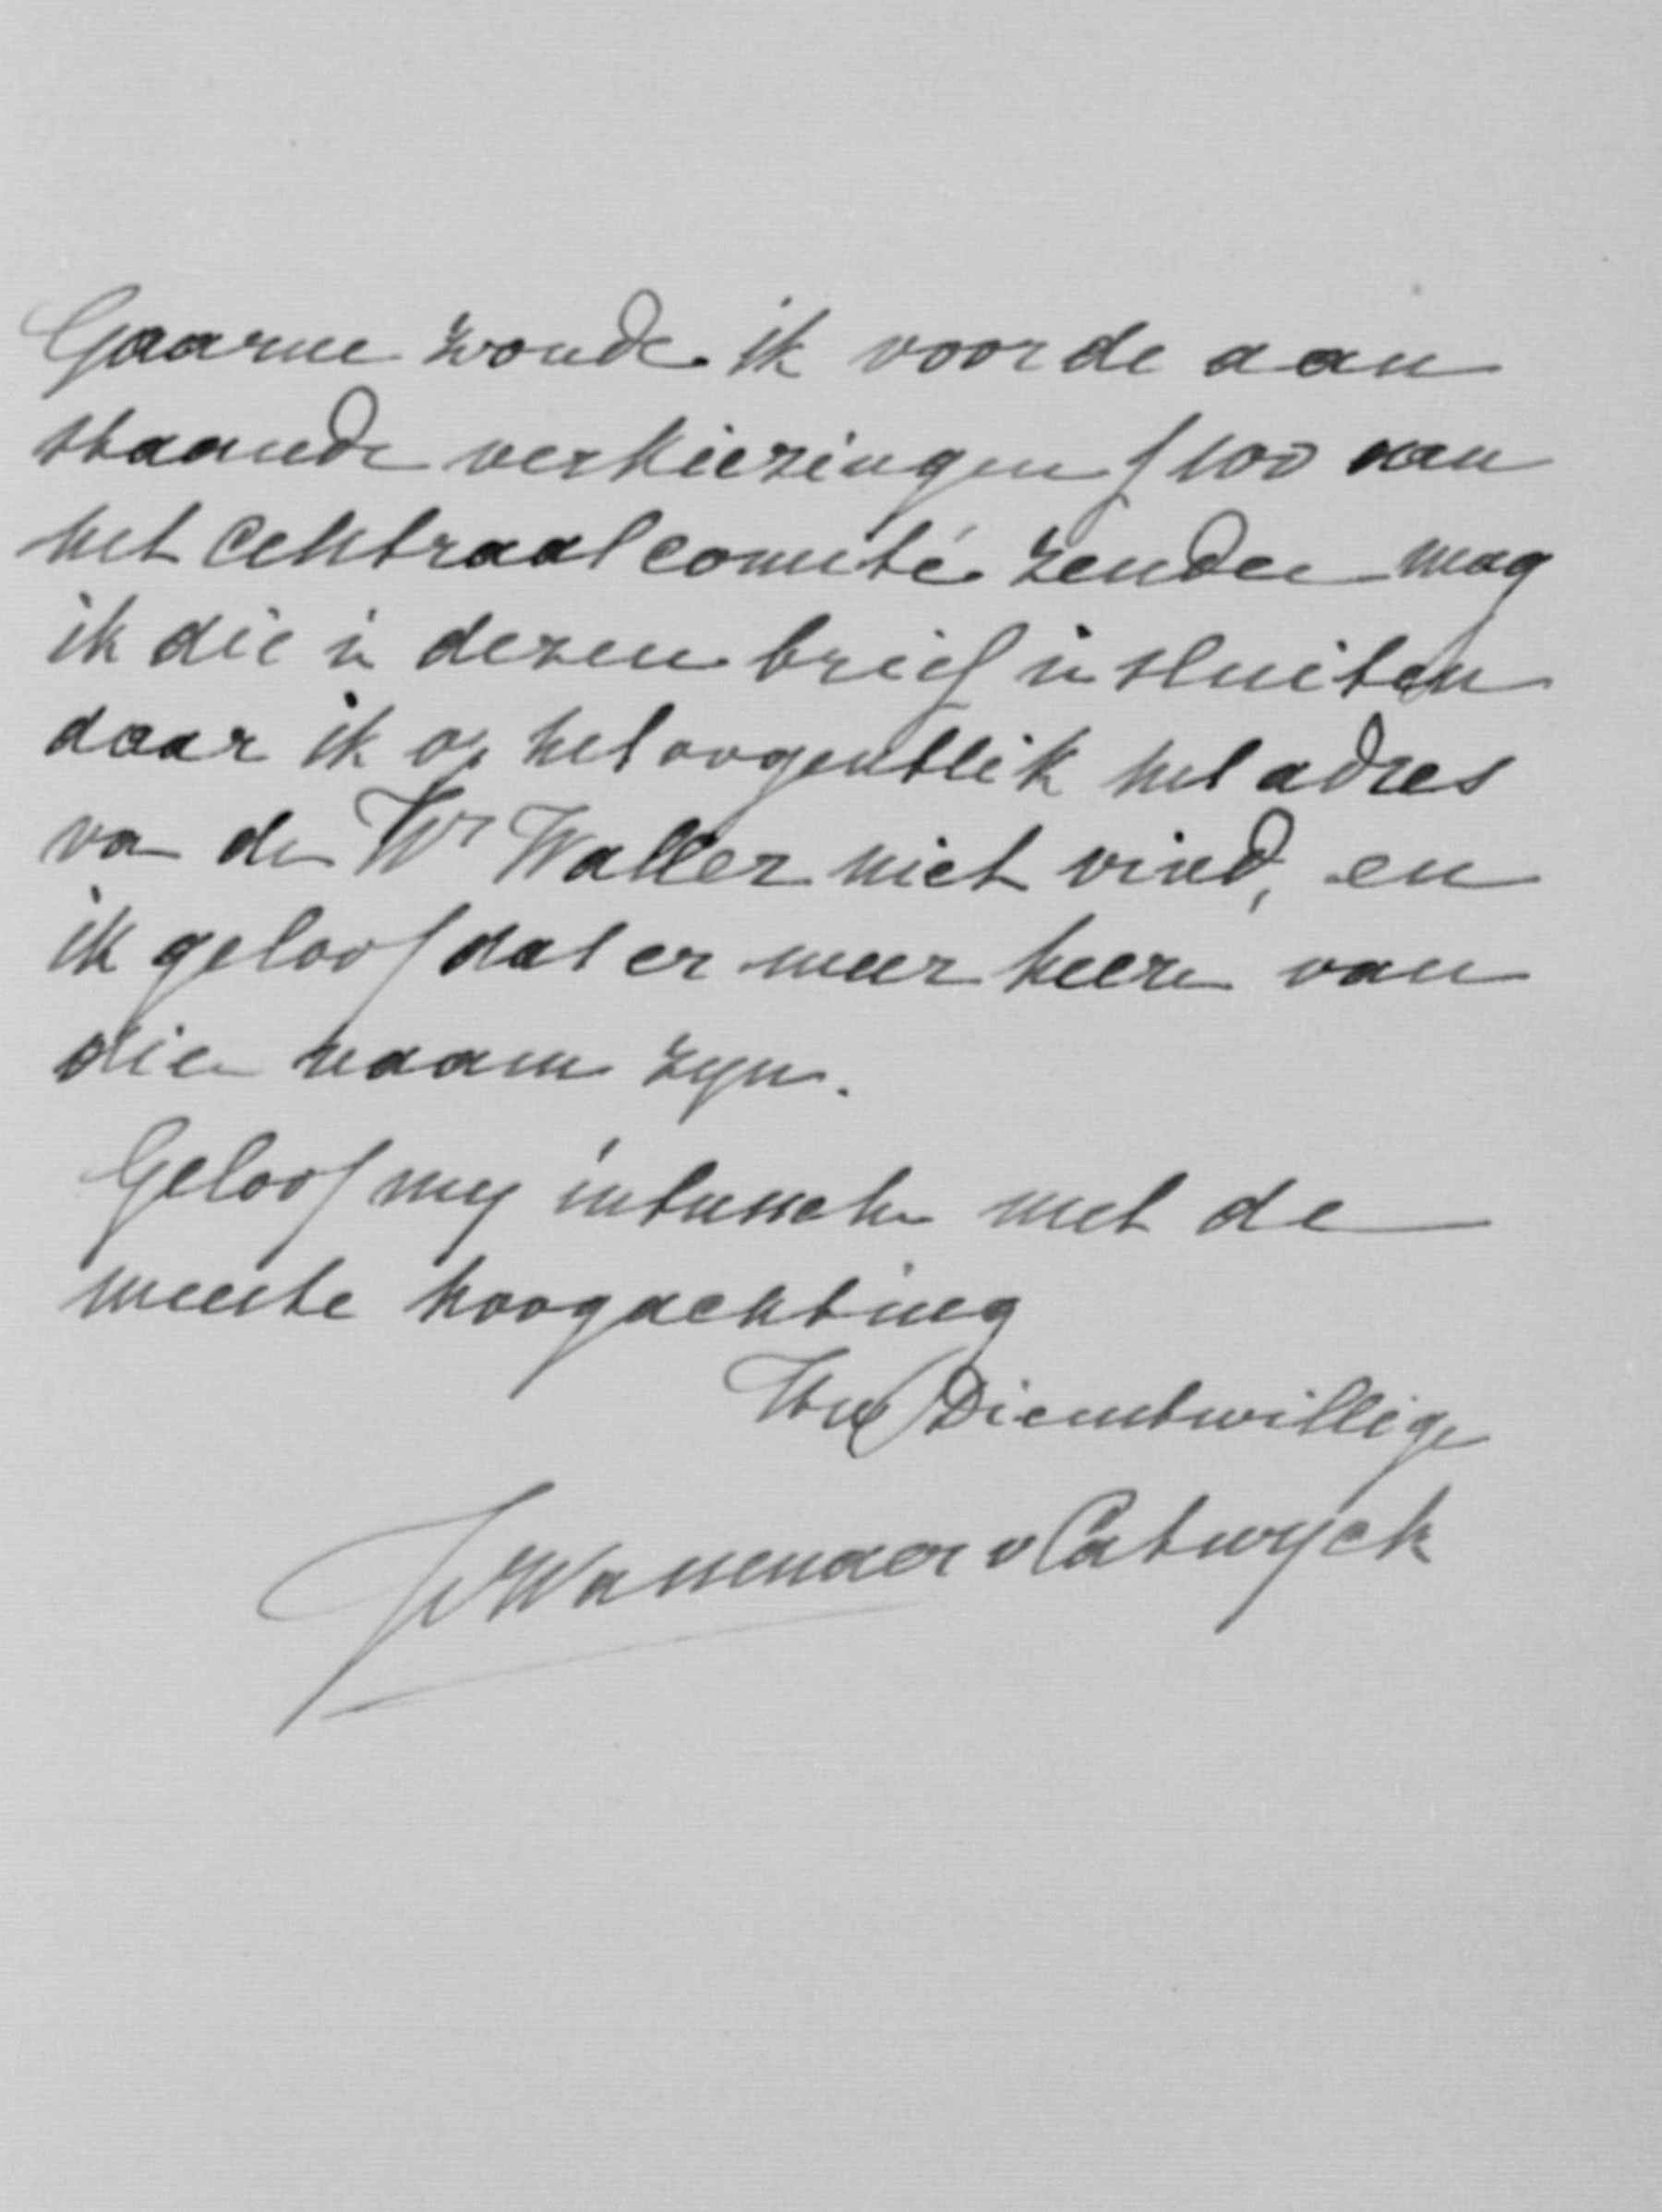 Gaarne zoude ik voor de aan
staande verkiezingen f 100 aan
het Centraal comité zenden mag
ik die in dezen brief insluiten
daar ik op het oogenblik het adres
van den Wr Waller niet vind, en
ik geloof dat er meer heeren van
die naam zyn.
Geloof my intusschen met de
meeste hoogachting
Uw Dienstwillige
v Wassenaer v Catwyck